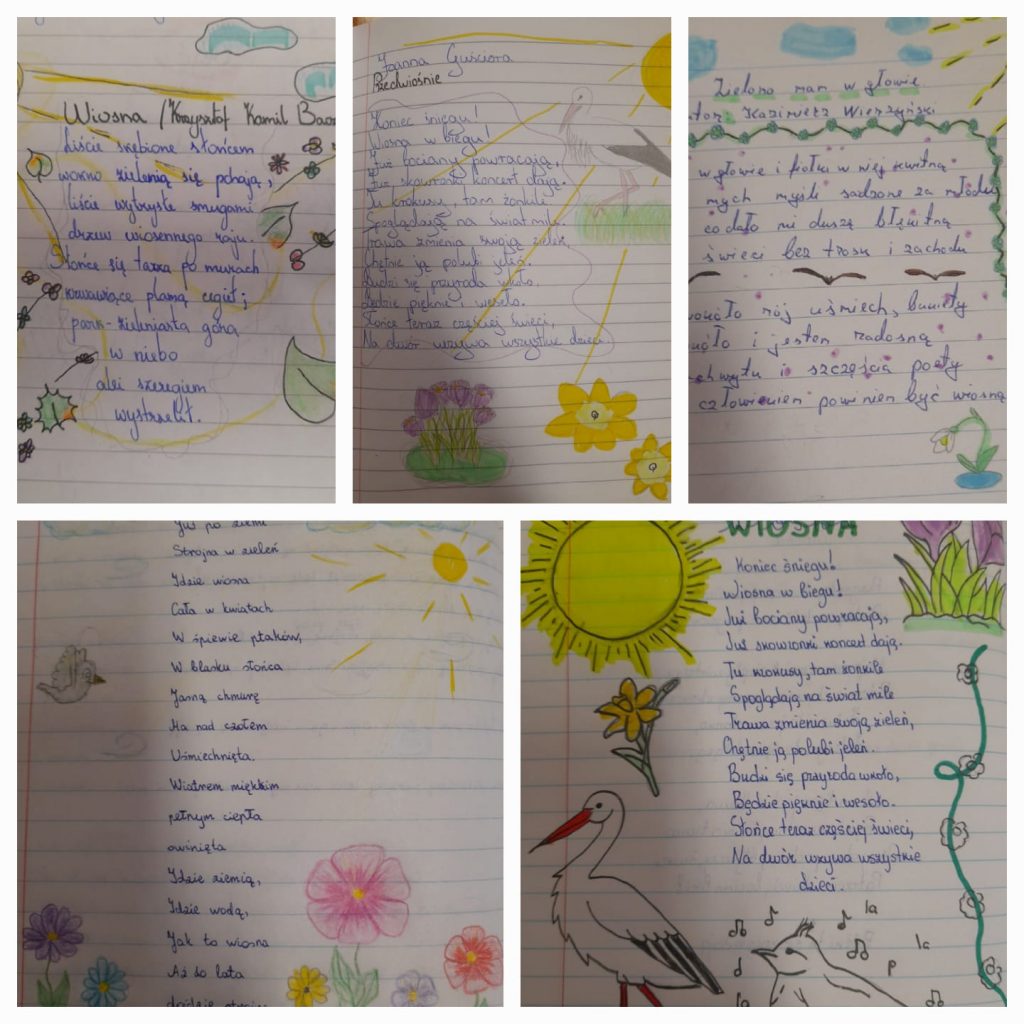 Wiosna /Krzysztof Kamil Bacz
Liście srebione słońcem
wokno zielenią się pchają,
liście wytrysłe smugami
drzew wiosennego raju.
Słońce się tarza po murach
krwawiące plamą cegieł;
park-zieleniasta górą
w niebo
alei szeregiem
wystrzelił.
Joanna Guściora
Przedwiośnie
Koniec śniegu!
Wiosna w biegu!
Już bociany powracają,
Już skowronki koncert dają.
Tu krokusy, tam żonkile
Spoglądają na świat mile.
Trawa zmienia swoją zieleń,
Chętnie ją polubi jeleń.
Budzi się przyroda wkoło.
Będzie pięknie i wesoło.
Słońce teraz częściej świeci,
Na dwór wzywa wszystkie dzieci.
Zielono mam w głowie
tor: Kazimierz Wierzyński
w głowie i fiołki w niej kwitną
mych myśli sadzone za młodu
co dało mi duszą błękitną
świeci bez trosk i zachodu
mój uśmiech, bukiety
i jestem radosną
chwytu i szczęścia poety
człowiekiem powinien być wiosną
Już po ziemi
Strojna w zieleń
Idzie wiosna
Cała w kwiatach
W śpiewie ptaków,
W blasku słońca
Jasną chmurę
Ma nad czołem
Uśmiechnięta.
Wiatrem miękkim
pełnym ciepła
owinięta
Idzie ziemią,
Idzie wodą,
Jak to wiosna
Aż do lata
WIOSNA
Koniec śniegu!
Wiosna w biegu!
Już bociany powracają,
Już skowronki koncert dają.
Tu krokusy, tam żonkile
Spoglądają na świat mile
Trawa zmienia swoją zieleń,
Chętnie ją polubi jeleń.
Budzi się przyroda wkoło,
Będzie pięknie i wesoło.
Słońce teraz częściej świeci,
Na dwór wzywa wszystkie
dzieci.
la
la
la